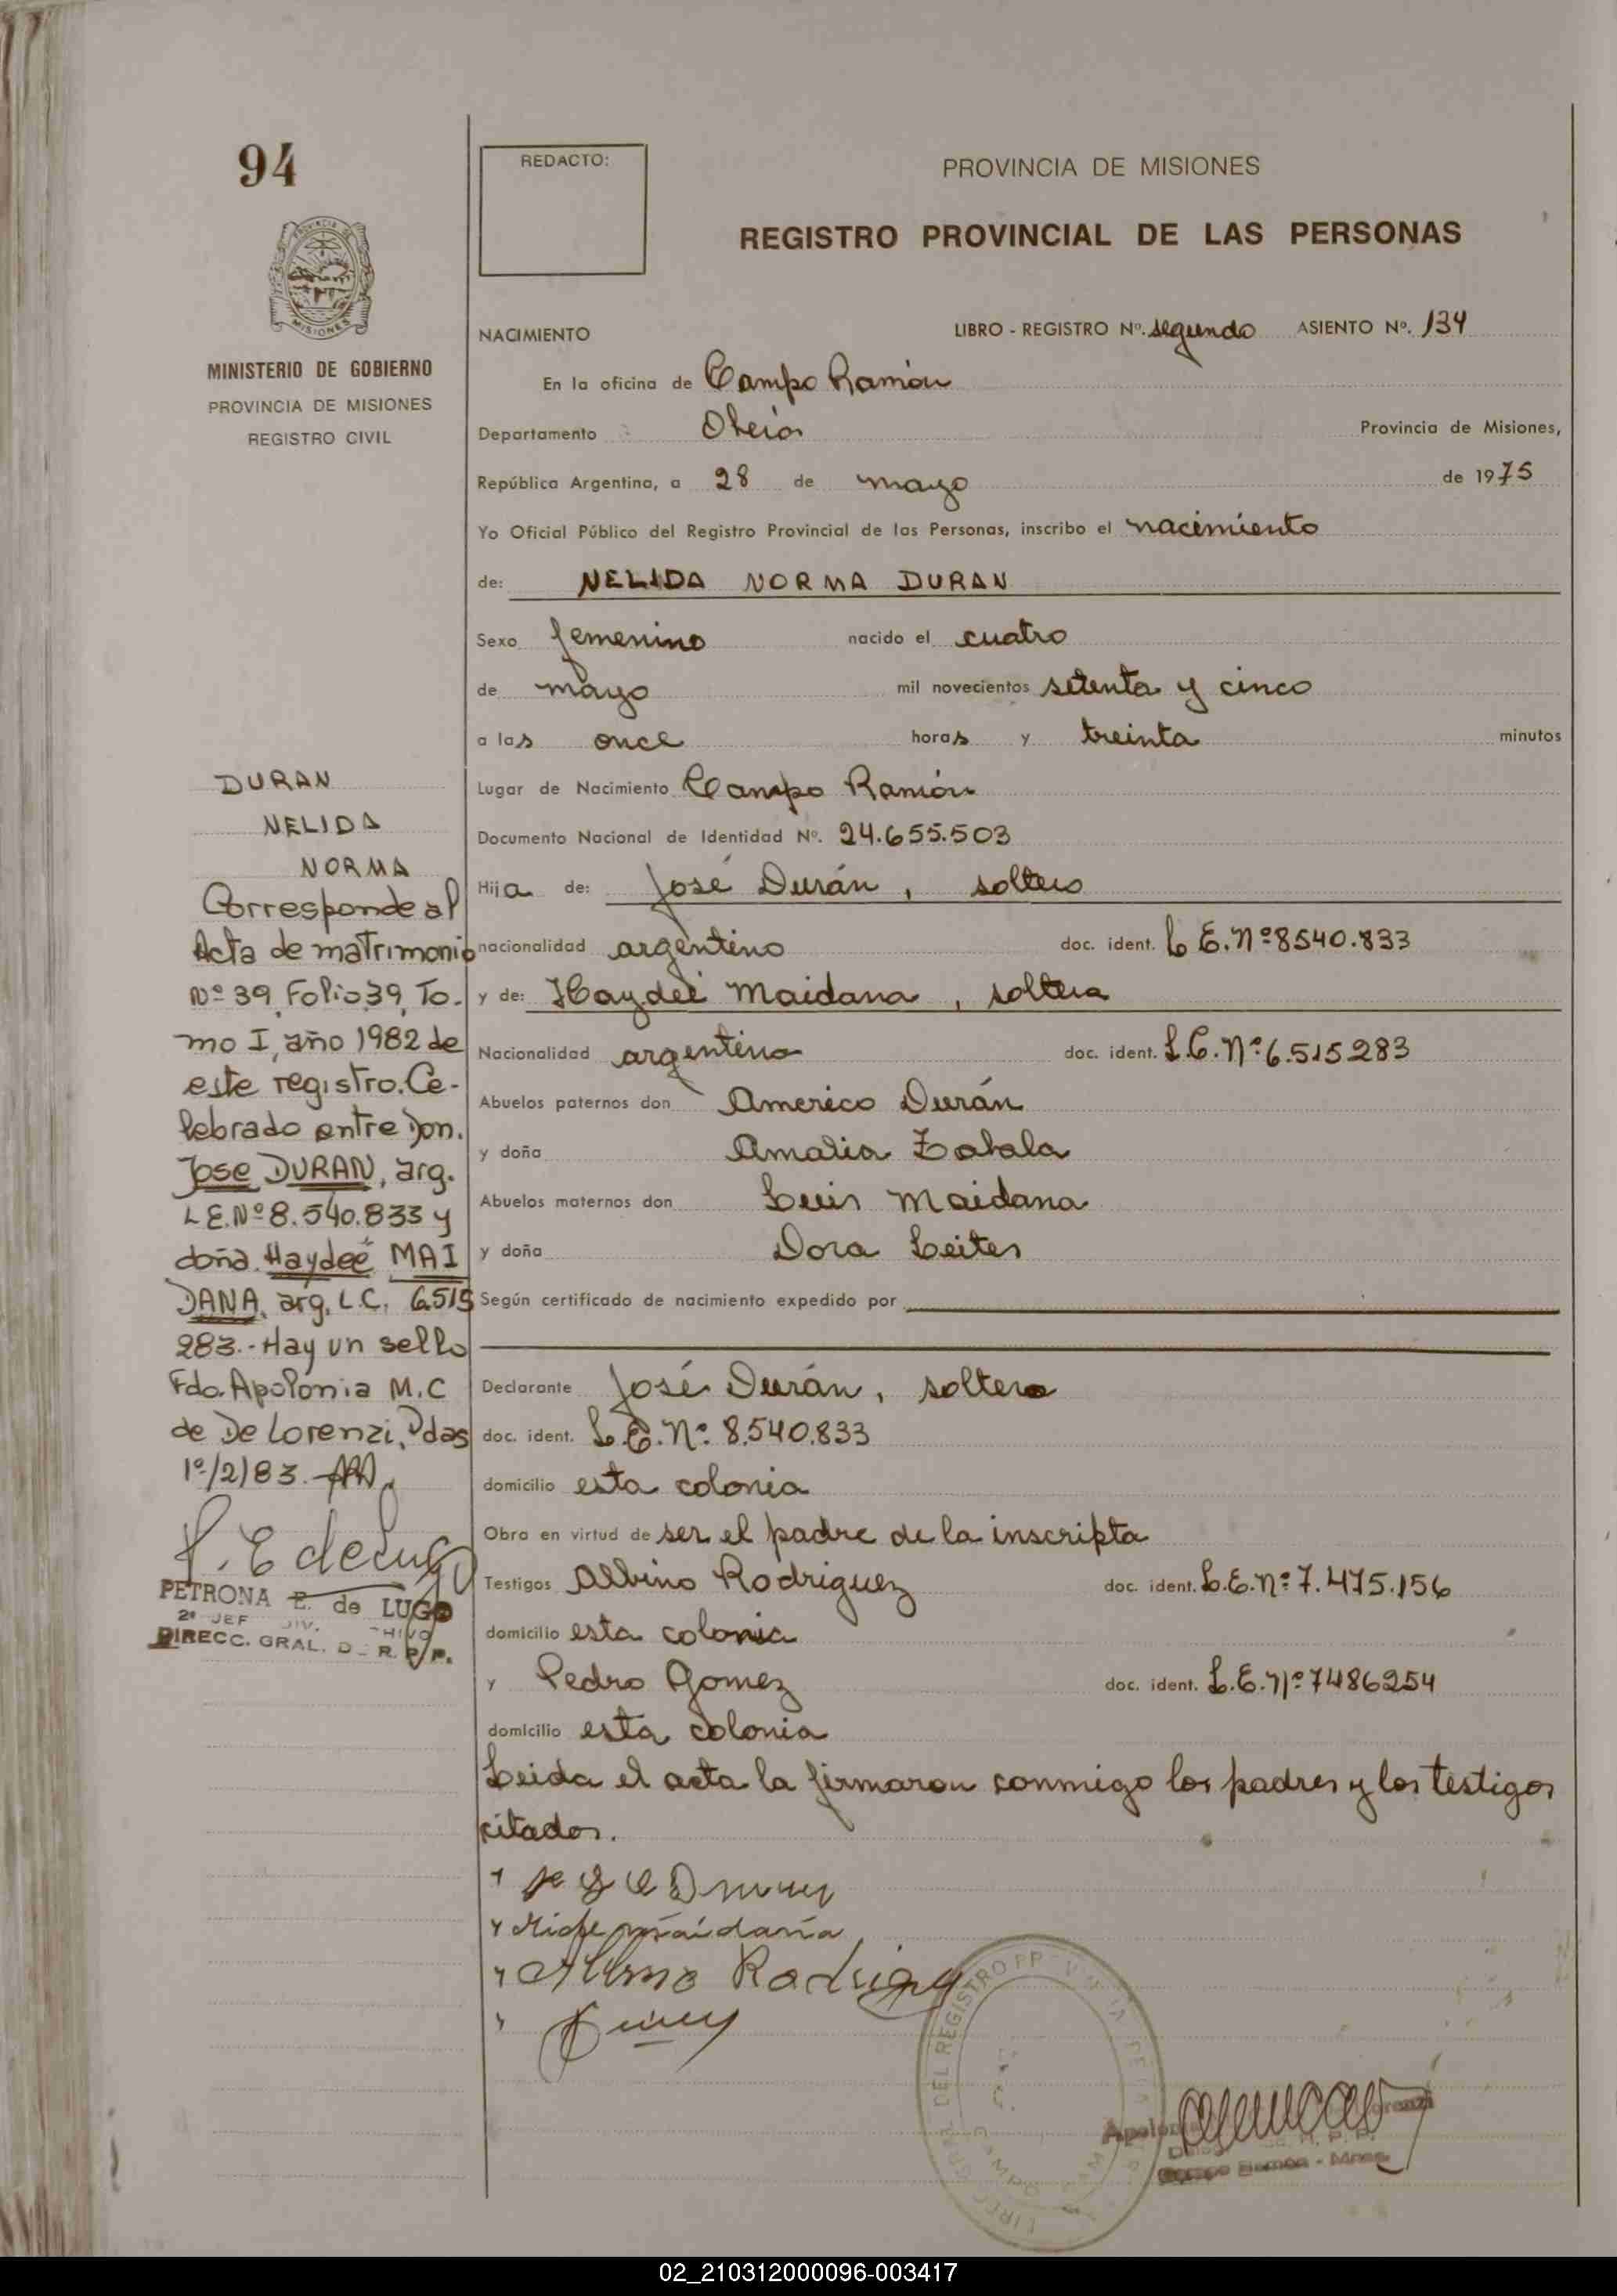 94
REDACTO:
PROVINCIA DE MISIONES
REGISTRO PROVINCIAL DE LAS PERSONAS
MISIONES
MINISTERIO DE GOBIERNO
PROVINCIA DE MISIONES
REGISTRO CIVIL
NACIMIENTO LIBRO - REGISTRO Nº. segundo ASIENTO Nº. 134
En la oficina de Campo Ramón
Departamento Oberá Provincia de Misiones,
República Argentina, a 28 de mayo de 1975
Yo Oficial Público del Registro Provincial de las Personas, inscribo el nacimiento
de: NELIDA NORMA DURAN
Sexo femenino nacido el cuatro
de mayo mil novecientos setenta y cinco
a las once horas y treinta minutos
Lugar de Nacimiento Campo Ramón
Documento Nacional de Identidad Nº. 24.655.503
Hija de: José Durán, soltero
nacionalidad argentino doc. ident. L E. Nº 8540.833
y de: Haydeé Maidana, soltera
Nacionalidad argentina doc. ident. L.C. Nº 6.515283
Abuelos paternos don Americo Durán
y doña Amalia Zabala
Abuelos maternos don Luis Maidana
y doña Dora Leites
Según certificado de nacimiento expedido por
Declarante José Durán, soltero
doc. ident. L.E. Nº. 8.540.833
domicilio esta colonia
Obra en virtud de ser el padre de la inscripta
Testigos Albino Rodriguez doc. ident. L.E. Nº 7.475.156
domicilio esta colonia
y Pedro Gomez doc. ident. L.E. Nº 7486254
domicilio esta colonia
Leida el acta la firmaron conmigo los padres y los testigos
citados.
DURAN
NELIDA
NORMA
Corresponde al
Acta de matrimonio
Nº 39, Folio 39, To-
mo I, año 1982 de
este registro. Ce-
lebrado entre Don.
Jose DURAN, arg.
L E. Nº 8.540.833 y
doña Haydeé MAI
DANA, arg. L.C. 6.515
283.- Hay un sello
Fdo. Apolonia M. C
de De Lorenzi, Pdas
1º/2/83.
PETRONA E. de LUGO
2º JEF DIV.
DIRECC. GRAL. D R. P. P.
maidana
Albino Rodriguez
DEL REGISTRO
Campo Ramón - Mnes.
02_210312000096-003417